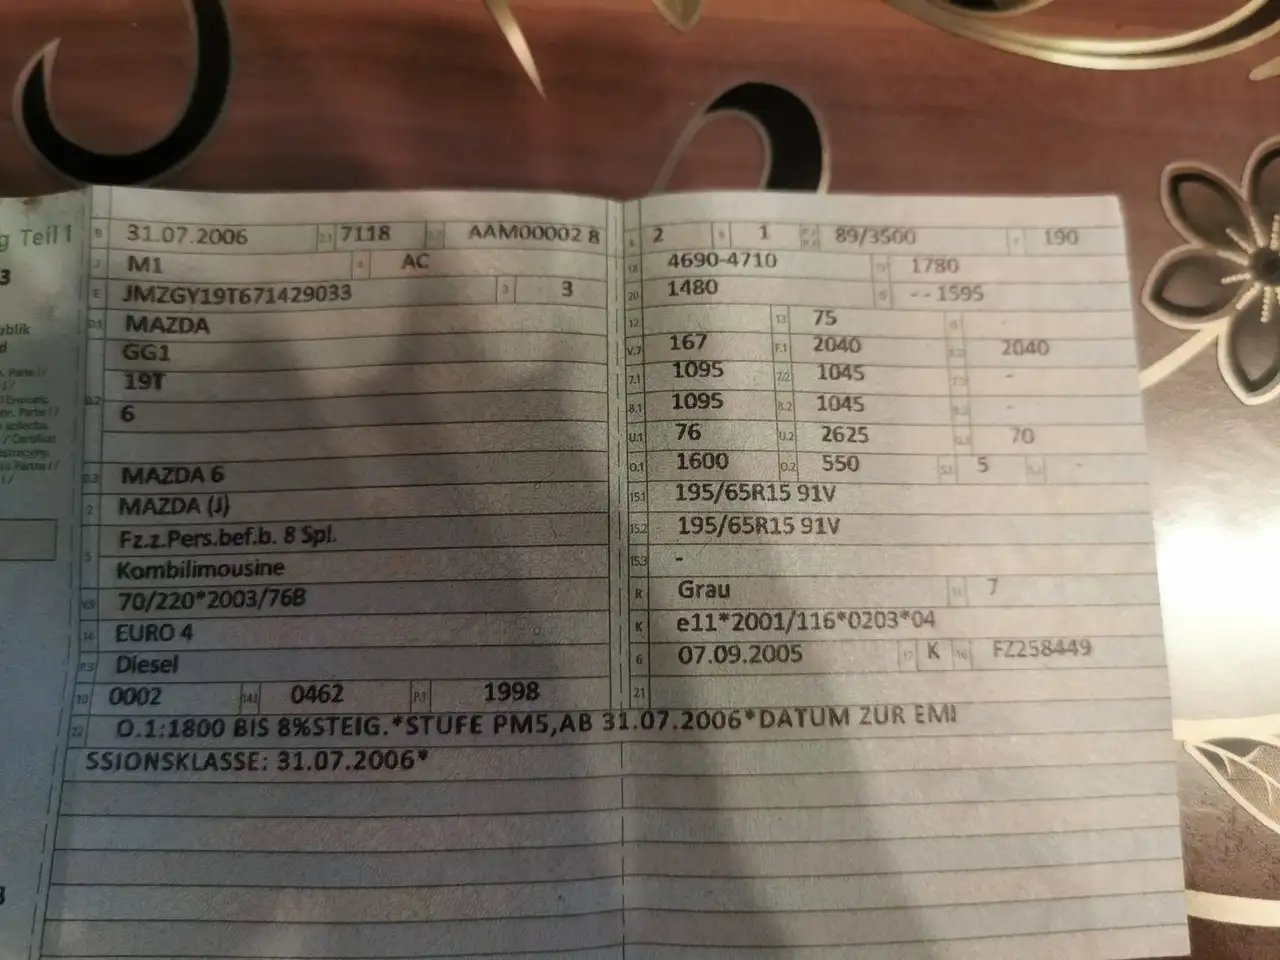 g Teil 1
B 31.07.2006 2.1 7118 2.2 AAM00002 8
J M1 4 AC
E JMZGY19T671429033 3 3
D.1 MAZDA
GG1
19T
D.2 6
D.3 MAZDA 6
2 MAZDA (J)
Fz.z.Pers.bef.b. 8 Spl.
5 Kombilimousine
V.9 70/220*2003/76B
14 EURO 4
P.3 Diesel
10 0002 14.1 0462 P.1 1998
L 2 9 1 P.2 P.4 89/3500 T 190
18 4690-4710 19 1780
20 1480 G - - 1595
12 13 75 Q -
V.7 167 F.1 2040 F.2 2040
7.1 1095 7.2 1045 7.3 -
8.1 1095 8.2 1045 8.3 -
U.1 76 U.2 2625 U.3 70
O.1 1600 O.2 550 S.1 5 S.2 -
15.1 195/65R15 91V
15.2 195/65R15 91V
15.3 -
R Grau 11 7
K e11*2001/116*0203*04
6 07.09.2005 17 K 16 FZ258449
21
22 O.1:1800 BIS 8%STEIG.*STUFE PM5,AB 31.07.2006*DATUM ZUR EMI
SSIONSKLASSE: 31.07.2006*